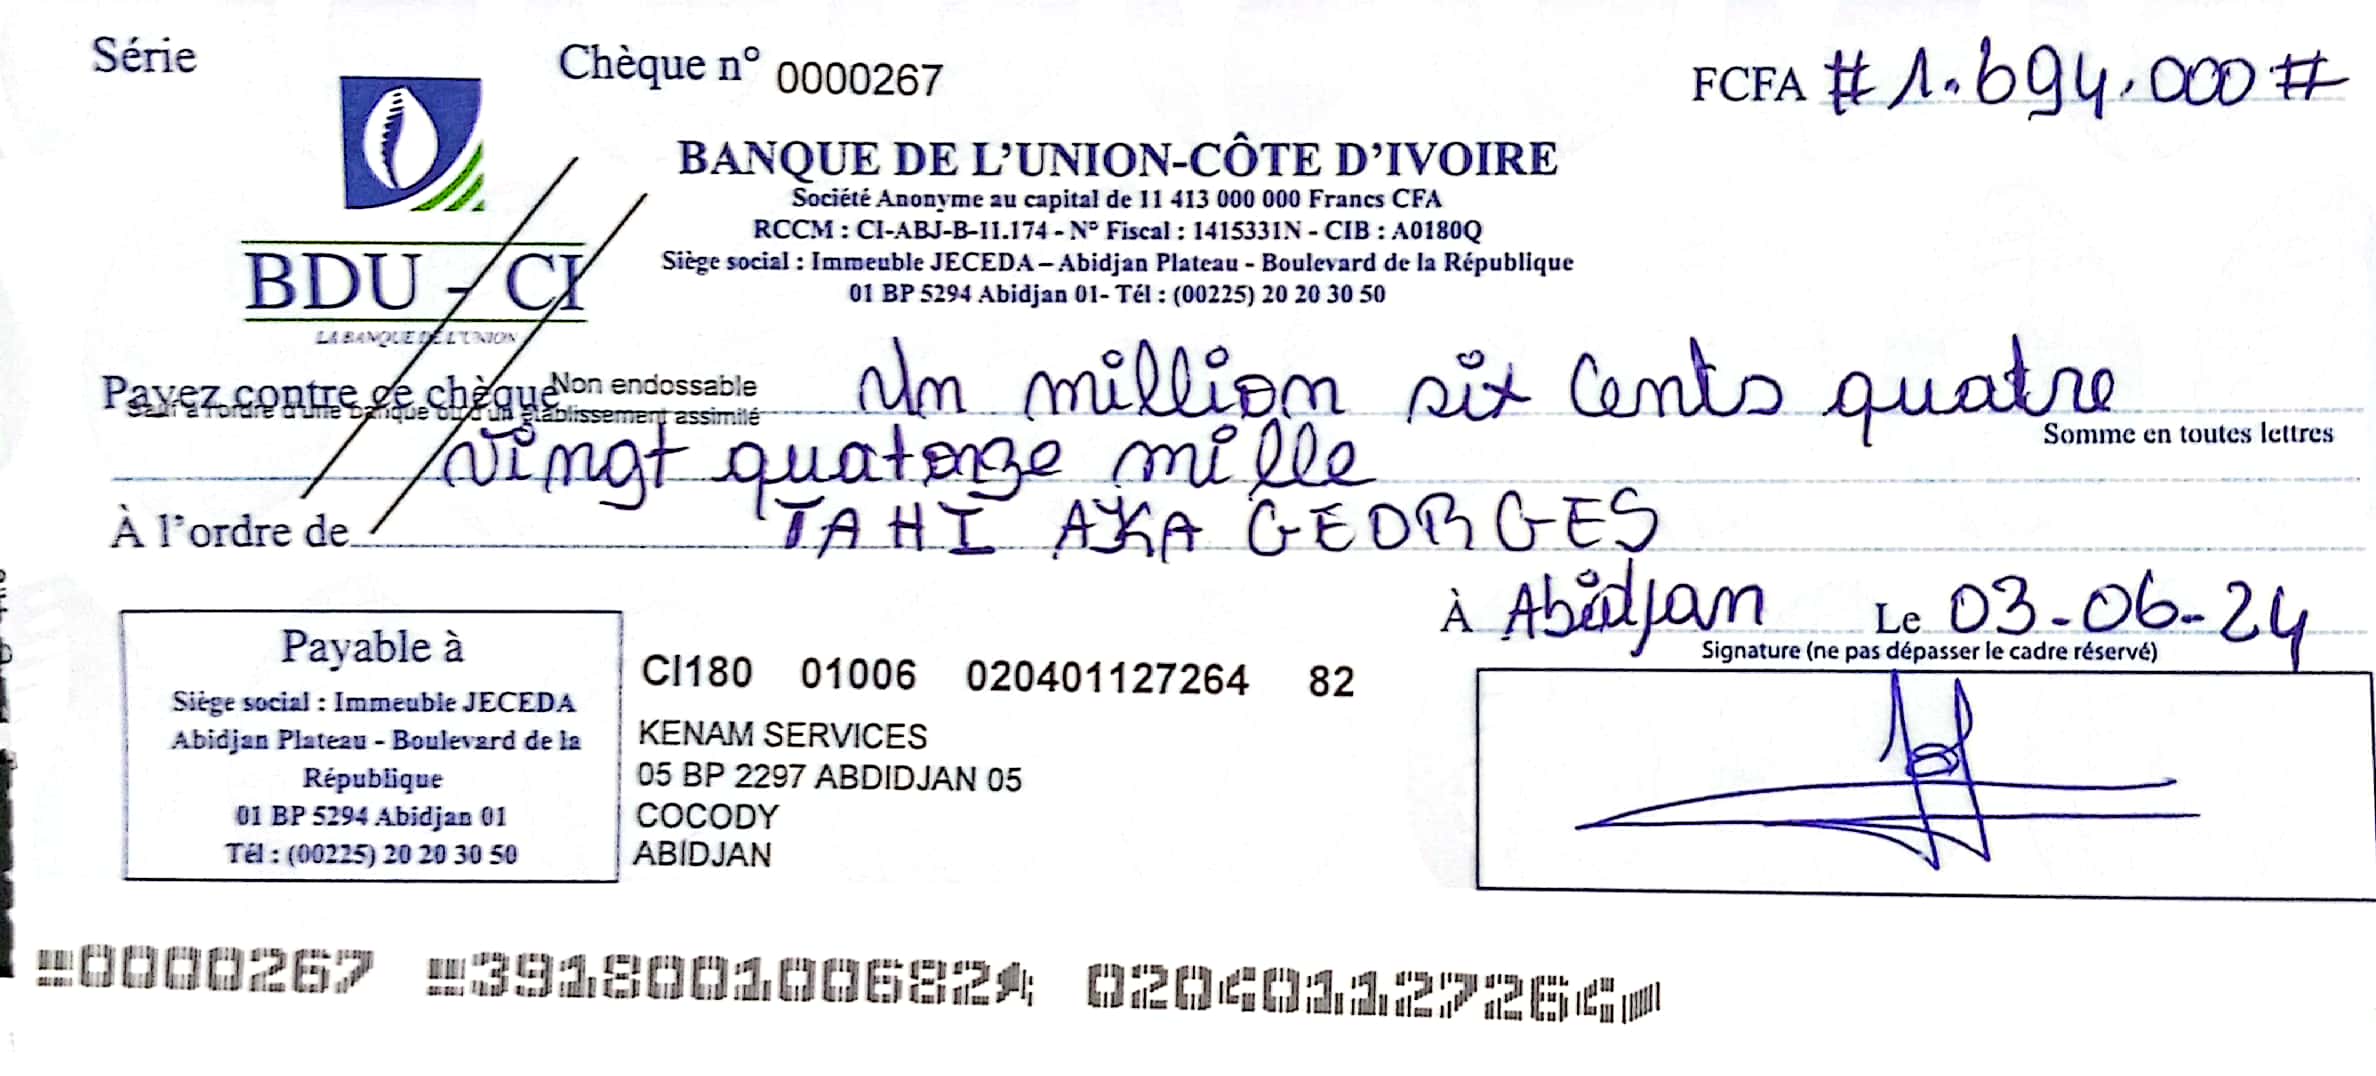 Série
Chèque n° 0000267
FCFA # 1.694.000 #
BANQUE DE L'UNION-CÔTE D'IVOIRE
Société Anonyme au capital de 11 413 000 000 Francs CFA
RCCM : CI-ABJ-B-11.174 - N° Fiscal : 1415331N - CIB : A0180Q
Siège social : Immeuble JECEDA – Abidjan Plateau - Boulevard de la République
01 BP 5294 Abidjan 01- Tél : (00225) 20 20 30 50
BDU - CI
LA BANQUE DE L'UNION
Payez contre ce chèque Non endossable Un million six cents quatre
sauf à l'ordre d'une banque ou d'un établissement assimilé
Somme en toutes lettres
vingt quatorze mille
À l'ordre de TAHI AKA GEORGES
À Abidjan Le 03-06-24
Signature (ne pas dépasser le cadre réservé)
Payable à
Siège social : Immeuble JECEDA
Abidjan Plateau - Boulevard de la
République
01 BP 5294 Abidjan 01
Tél : (00225) 20 20 30 50
CI180 01006 020401127264 82
KENAM SERVICES
05 BP 2297 ABDIDJAN 05
COCODY
ABIDJAN
0000267 391800100682 020401127264